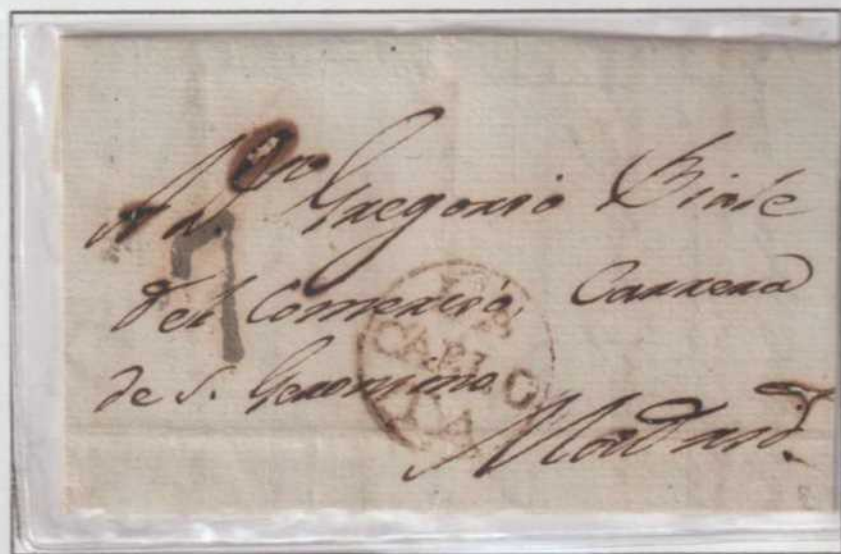 A Dn Gregorio Biale
del Comercio, Carrera
de S. Geronimo.
Madrid.
7